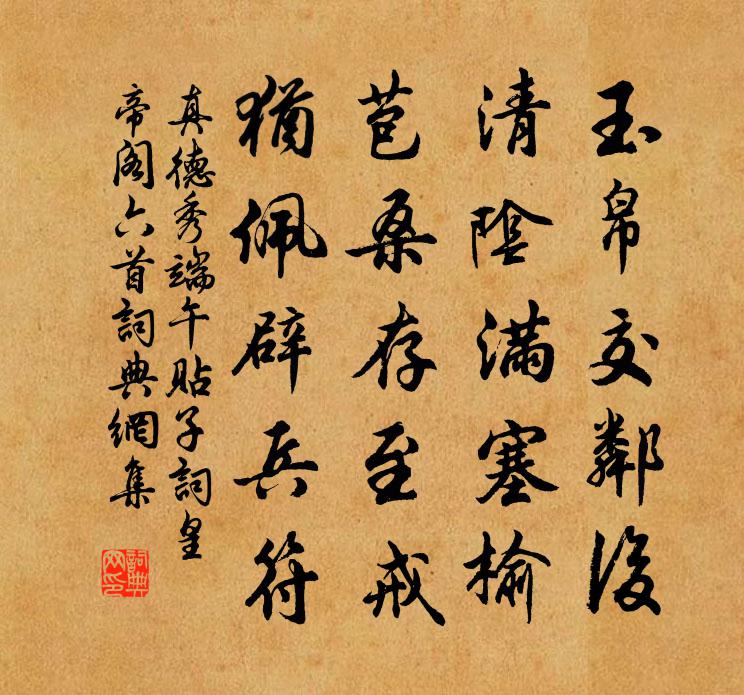 玉帛交鄰後
清陰滿塞榆
苞桑存至戒
猶佩辟兵符
真德秀端午貼子詞皇
帝閣六首詞典網集
詞典網印